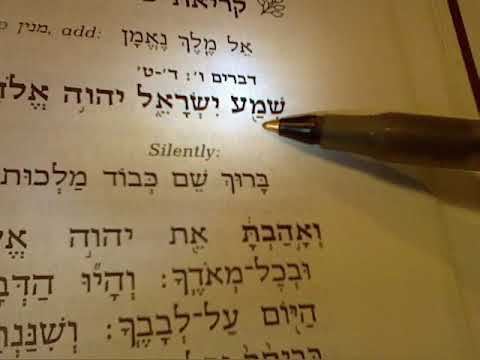 קריאת
מנין, add:
אֵל מֶֽלֶךְ נֶאֱמָן
דברים ו׳: ד׳-ט׳
שְׁמַ֖ע יִשְׂרָאֵ֑ל יהוה אֱלֹ
Silently:
בָּרוּךְ שֵׁם כְּבוֹד מַלְכוּת
וְאָ֣הַבְתָּ֔ אֵ֖ת יהוה אֱ
וּבְכׇל־מְאֹדֶֽךָ: וְהָי֞וּ הַדְּבָ
הַיּ֖וֹם עַל־לְבָבֶֽךָ: וְשִׁנַּנְתָּ